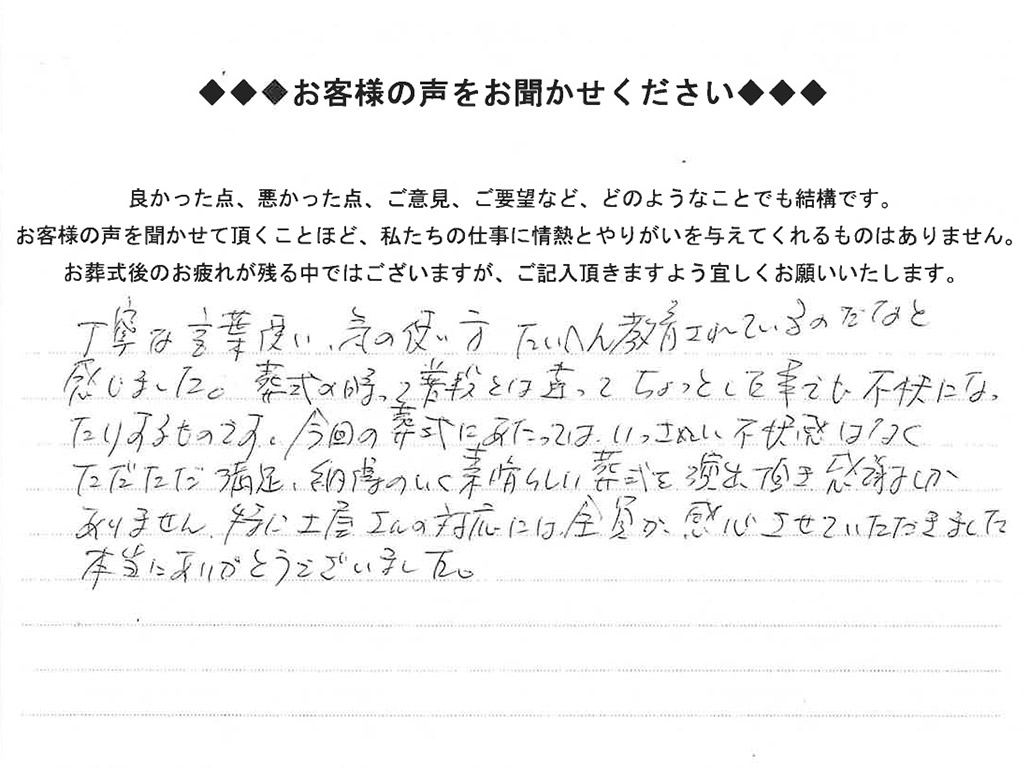 ◆◆◆お客様の声をお聞かせください◆◆◆
良かった点、悪かった点、ご意見、ご要望など、どのようなことでも結構です。
お客様の声を聞かせて頂くことほど、私たちの仕事に情熱とやりがいを与えてくれるものはありません。
お葬式後のお疲れが残る中ではございますが、ご記入頂きますよう宜しくお願いいたします。
丁寧な言葉使い、気の使い方 たいへん教育されているのだなと
感じました。葬式の時って普段とは違ってちょっとした事でも不快になっ
たりするものです、今回の葬式にあたっては、いっさい不快感はなく
ただただ満足、納得のいく素晴らしい葬式を演出頂き感謝しか
ありません、特に土屋さんの対応には全員が感心させていただきました
本当にありがとうございました。